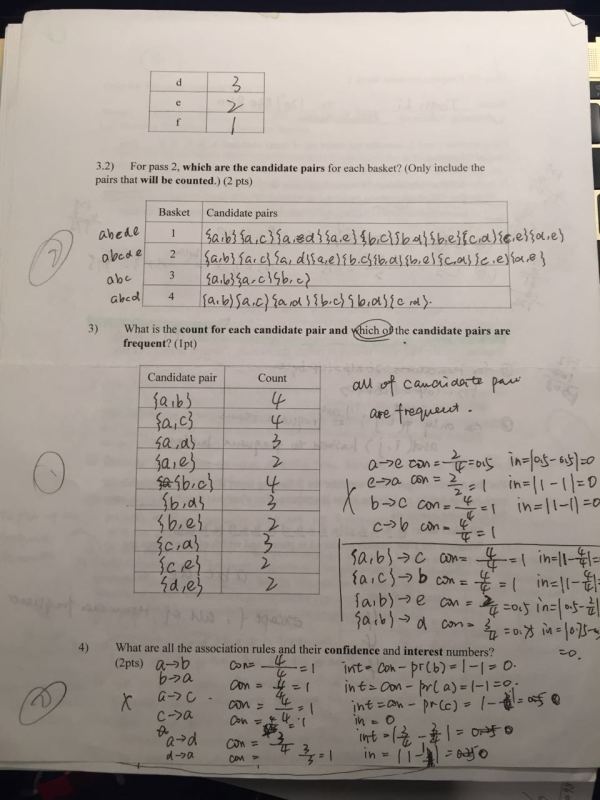 d 3
e 2
f 1
3.2) For pass 2, which are the candidate pairs for each basket? (Only include the
pairs that will be counted.) (2 pts)
Basket Candidate pairs
abcde 1 {a,b}{a,c}{a,d}{a,e}{b,c}{b,d}{b,e}{c,d}{c,e}{d,e}
abcde 2 {a,b}{a,c}{a,d}{a,e}{b,c}{b,d}{b,e}{c,d}{c,e}{d,e}
abc 3 {a,b}{a,c}{b,c}
abcd 4 {a,b}{a,c}{a,d}{b,c}{b,d}{c,d}.
3) What is the count for each candidate pair and which of the candidate pairs are
frequent? (1pt)
Candidate pair Count
{a,b} 4
{a,c} 4
{a,d} 3
{a,e} 2
{b,c} 4
{b,d} 3
{b,e} 2
{c,d} 3
{c,e} 2
{d,e} 2
all of candidate pair
are frequent.
a→e con= 2/4 =0.5 in=|0.5-0.5|=0
e→a con= 2/2 =1 in=|1-1|=0
X b→c con= 4/4 =1 in=|1-1|=0
c→b con= 4/4 =1
{a,b}→c con= 4/4 =1 in=|1-4/4|=
{a,c}→b con= 4/4 =1 in=|1-4/4|
{a,b}→e con= 2/4 =0.5 in=|0.5-2/4|
{a,b}→d con= 3/4 =0.75 in=|0.75-
=0.
4) What are all the association rules and their confidence and interest numbers?
(2pts) a→b con= 4/4 =1 int=con-pr(b)=1-1=0.
b→a con= 4/4 =1 int=con-pr(a)=1-1=0.
X a→c con= 4/4 =1 int=con-pr(c)=|1- 0
c→a con= 4/4 =1 in=0
a→d con= 3/4 int=|3/4-3/4|= 0
d→a con= 3/3 =1 in=|1-1|= 0